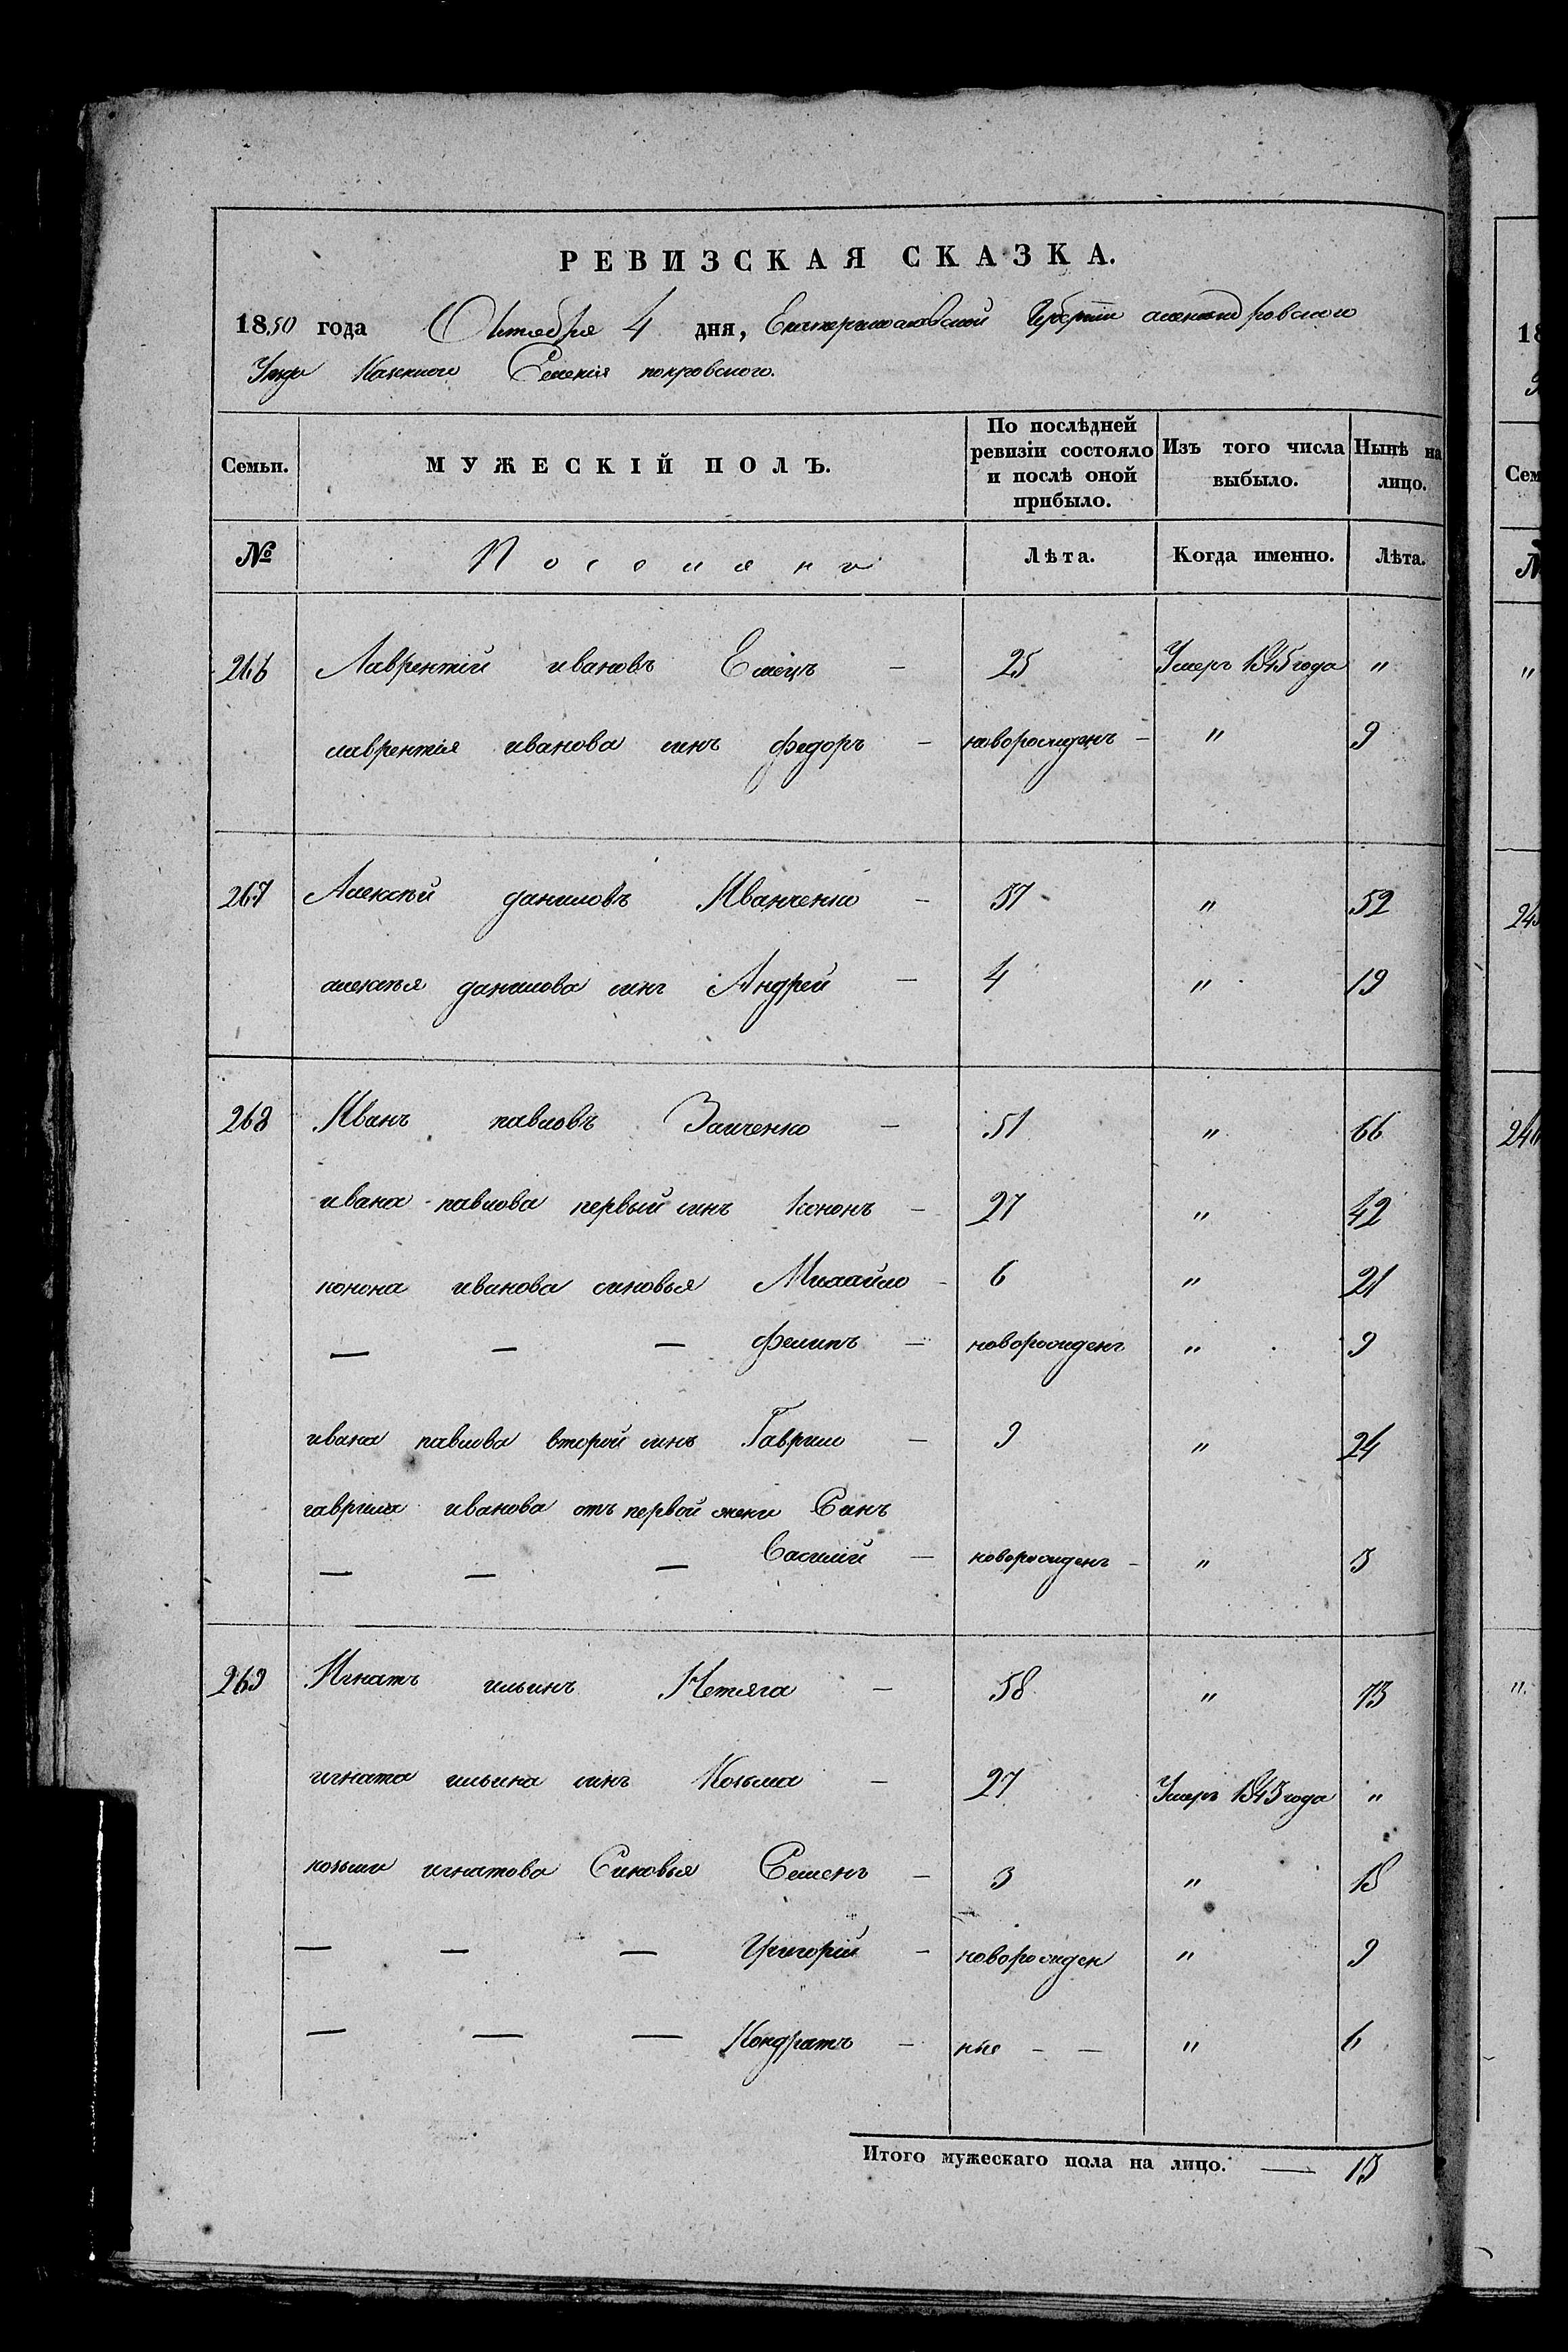 РЕВИЗСКАЯ СКАЗКА.
1850 года Октября 4 дня, Екатеринославской Губерніи александровского
Уезда Казенного Селенія покровского.
Семьи. МУЖЕСКІЙ ПОЛЪ. По послѣдней ревизіи состояло и послѣ оной прибыло. Изъ того числа выбыло. Нынѣ на лицо.
№ Поселяни Лѣта. Когда именно. Лѣта.
266 Лаврентій ивановъ Емецъ — 25 Умеръ 1845 года "
лаврентія иванова синъ федоръ — новорожденъ — " 9
267 Алексѣй даниловъ Иванченко — 37 " 52
алексѣя данилова синъ Андрей — 4 " 19
268 Иванъ павловъ Заиченко — 51 " 66
ивана павлова первый синъ Кононъ — 27 " 42
конона иванова синовья Михайло — 6 " 21
— — — филипъ — новорожденъ " 9
ивана павлова второй синъ Гаврило — 9 " 24
гаврила иванова отъ первой жени Синъ
— — — Василій — новорожденъ — " 3
269 Игнатъ ильинъ Нетяга — 58 " 73
игната ильина синъ Козьма — 27 Умеръ 1843 года "
козьми игнатова Синовья Семенъ — 3 " 18
— — — Григорій — новорожден " 9
— — — Кондратъ — ніе — — " 6
Итого мужескаго пола на лицо. — 13
18
Сем
№
"
245
246
"